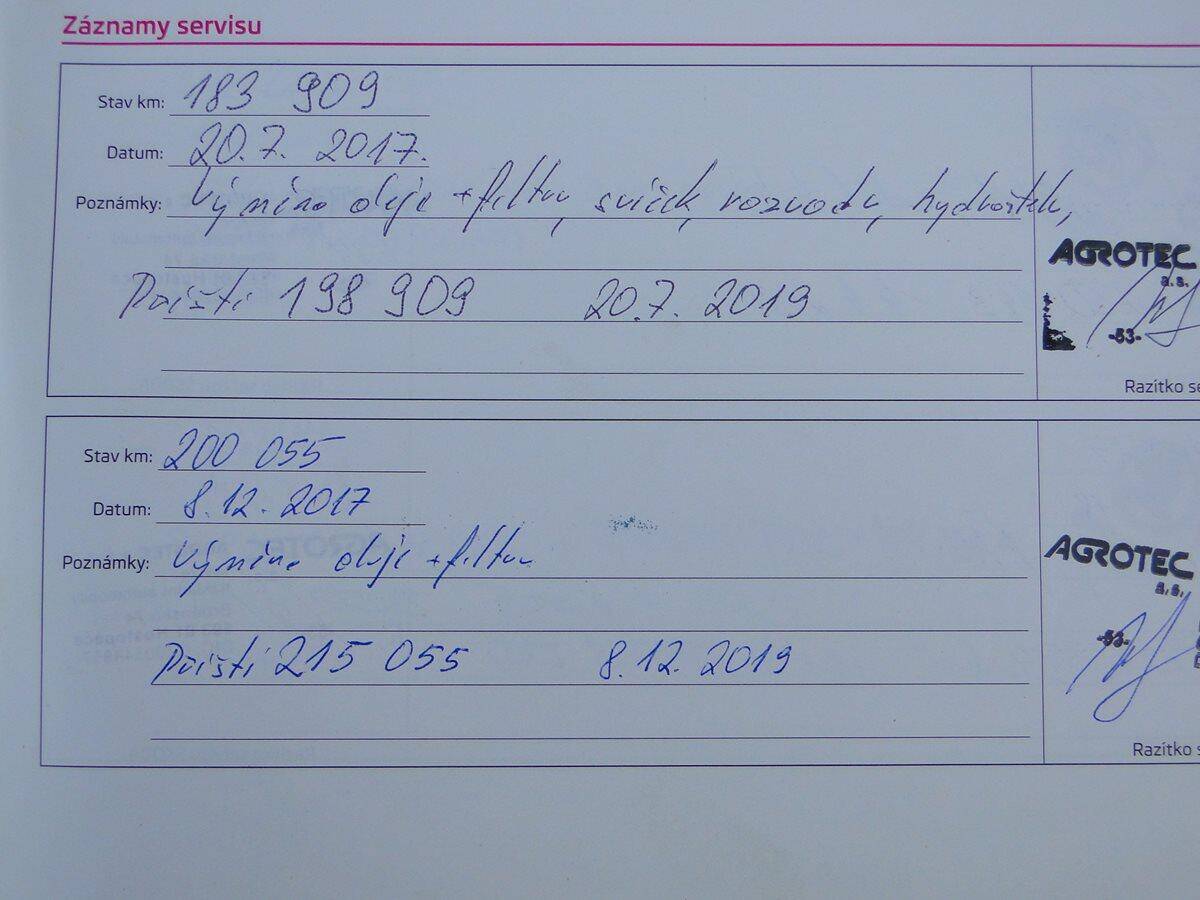 Záznamy servisu
Stav km: 183 909
Datum: 20.7. 2017.
Poznámky: Výměna oleje + filtru, svíček, rozvodu, hydroštek,
AGROTEC
a.s.
Příští 198 909 20.7. 2019
-53-
Razítko se
Stav km: 200 055
Datum: 8.12. 2017
Poznámky: Výměna oleje + filtru
AGROTEC
a.s.
-53-
Příští 215 055 8.12. 2019
Razítko s